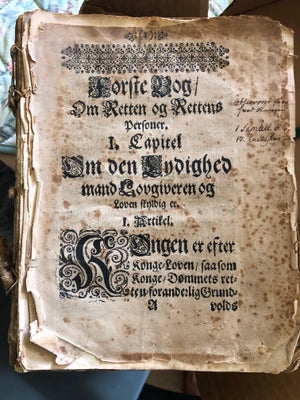 ( 1 )
Første Bog/
Om Retten og Rettens
Personer.
I. Capitel
Om den Lydighed
mand Lovgiveren og
Loven skyldig er.
1. Artikel.
KOngen er efter
Konge-Loven/ saa som
Konge-Dømmets ret-
ten/ foranderlig Grund-
A volds